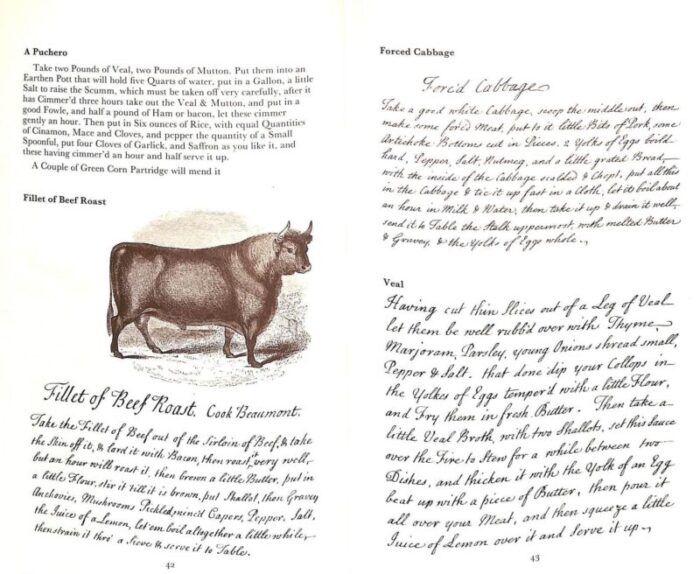 A Puchero
Take two Pounds of Veal, two Pounds of Mutton. Put them into an
Earthen Pott that will hold five Quarts of water, put in a Gallon, a little
Salt to raise the Scumm, which must be taken off very carefully, after it
has Cimmer'd three hours take out the Veal & Mutton, and put in a
good Fowle, and half a pound of Ham or bacon, let these cimmer
gently an hour. Then put in Six ounces of Rice, with equal Quantities
of Cinamon, Mace and Cloves, and pepper the quantity of a Small
Spoonful, put four Cloves of Garlick, and Saffron as you like it, and
these having cimmer'd an hour and half serve it up.
A Couple of Green Corn Partridge will mend it
Fillet of Beef Roast
Fillet of Beef Roast. Cook Beaumont.
Take the Fillet of Beef out of the Sirloin of Beef, & take
the Skin off it, & lard it with Bacon, then roast it very well,
but an hour will roast it, then brown a little Butter, put in
a little Flour, stir it till it is brown, put Shallot, then Gravey
Anchovies, Mushrooms Pickled, minc'd Capers, Pepper, Salt,
the Juice of a Lemon, let 'em boil altogether a little while,
then strain it thro' a Sieve & serve it to Table.
42
Forced Cabbage
Forc'd Cabbage
Take a good white Cabbage, scoop the middle out, then
make some forc'd Meat, put to it little Bits of Pork, some
Artichoke Bottoms cut in Pieces. 2 Yolks of Eggs boild
hard, Pepper, Salt, Nutmeg, and a little grated Bread,
with the inside of the Cabbage scalded & Chopt, put all this
in the Cabbage & tie it up fast in a Cloth, let it boil about
an hour in Milk & Water, then take it up & drain it well,
send it to Table the Stalk uppermost, with melted Butter
& Gravey, & the Yolks of Eggs whole.
Veal
Having cut thin Slices out of a Leg of Veal
let them be well rubb'd over with Thyme
Marjoram, Parsley, young Onions shread small,
Pepper & Salt. that done dip your Collops in
the Yolkes of Eggs temper'd with a little Flour,
and Fry them in fresh Butter. Then take a
little Veal Broth, with two Shallots, set this Sauce
over the Fire to Stew for a while between two
Dishes, and thicken it with the Yolk of an Egg
beat up with a piece of Butter, then pour it
all over your Meat, and then squeeze a little
Juice of Lemon over it and Serve it up.
43